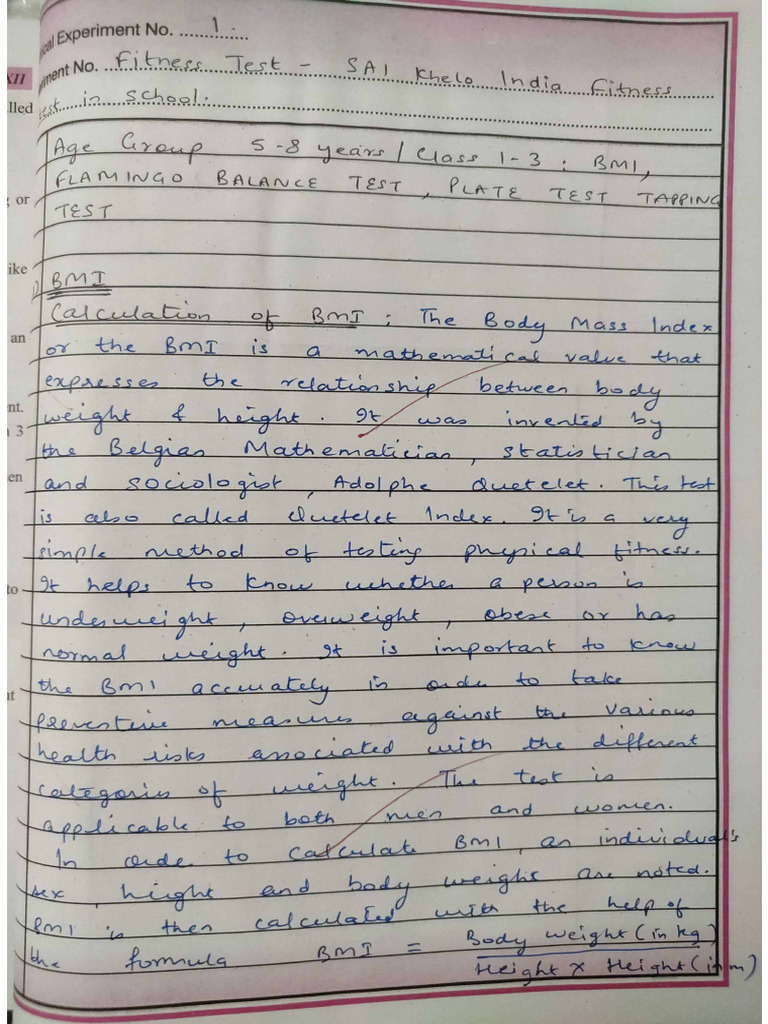 ical Experiment No. ..... 1 .
iment No. Fitness Test - SAI Khelo India Fitness
Test in school.
XII
lled
; or
ike
an
nt.
3
en
to
nt
Age Group 5-8 years / Class 1-3 : BMI,
FLAMINGO BALANCE TEST, PLATE TEST TAPPING
TEST
1) BMI
Calculation of BMI : The Body Mass Index
or the BMI is a mathematical value that
expresses the relationship between body
weight & height. It was invented by
the Belgian Mathematician, statistician
and sociologist, Adolphe Quetelet. This test
is also called Quetelet Index. It is a very
simple method of testing physical fitness.
It helps to know whether a person is
underweight, overweight, obese or has
normal weight. It is important to know
the BMI accurately in order to take
preventive measures against the various
health risks associated with the different
categories of weight. The test is
applicable to both men and women.
In order to calculate BMI, an individual's
sex, height and body weight are noted.
BMI is then calculated with the help of
the formula BMI = Body weight (in kg)
Height x Height (in m)